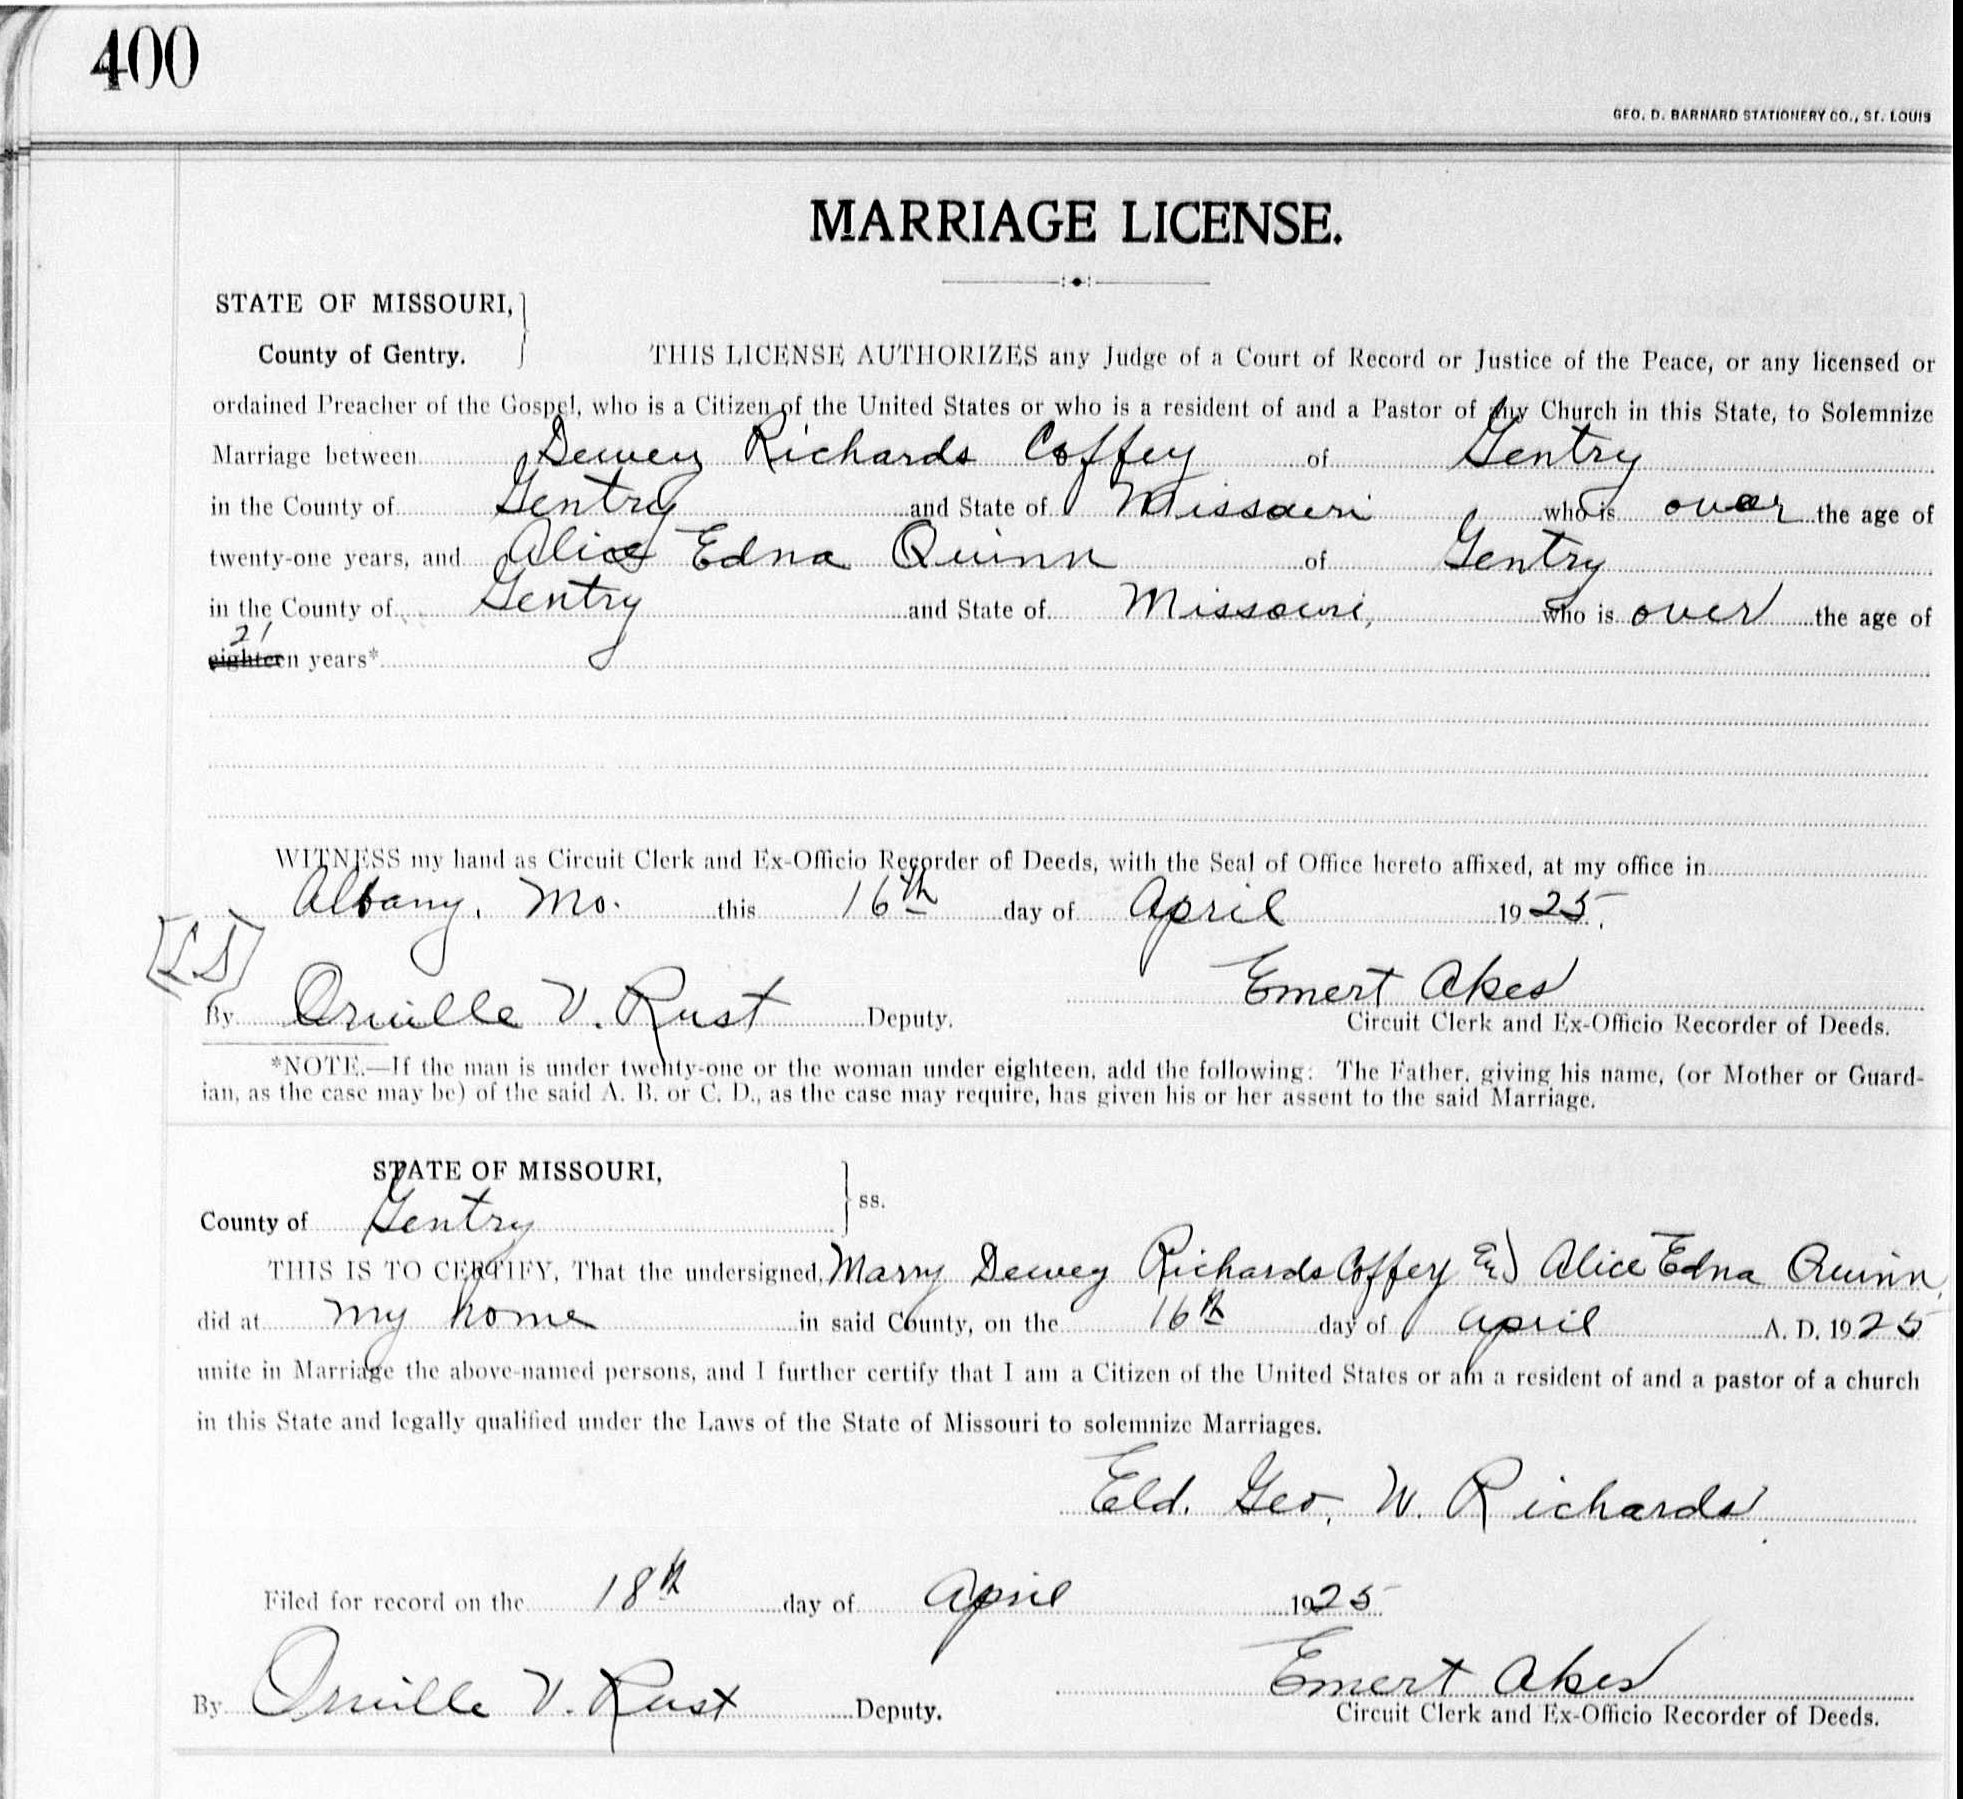 400
GEO. D. BARNARD STATIONERY CO., ST. LOUIS
MARRIAGE LICENSE.
STATE OF MISSOURI,
County of Gentry.
THIS LICENSE AUTHORIZES any Judge of a Court of Record or Justice of the Peace, or any licensed or
ordained Preacher of the Gospel, who is a Citizen of the United States or who is a resident of and a Pastor of any Church in this State, to Solemnize
Marriage between Dewey Richards Coffey of Gentry
in the County of Gentry and State of Missouri who is over the age of
twenty-one years, and Alice Edna Quinn of Gentry
in the County of Gentry and State of Missouri, who is over the age of
21
eighteen years*
WITNESS my hand as Circuit Clerk and Ex-Officio Recorder of Deeds, with the Seal of Office hereto affixed, at my office in
Albany, Mo. this 16th day of April 1925.
[LS]
Emert Akes
By Orville V. Rust Deputy.
Circuit Clerk and Ex-Officio Recorder of Deeds.
*NOTE.—If the man is under twenty-one or the woman under eighteen, add the following: The Father, giving his name, (or Mother or Guard-
ian, as the case may be) of the said A. B. or C. D., as the case may require, has given his or her assent to the said Marriage.
STATE OF MISSOURI,
ss.
County of Gentry
THIS IS TO CERTIFY, That the undersigned, Marry Dewey Richards Coffey & Alice Edna Quinn,
did at my home in said County, on the 16th day of April A. D. 1925
unite in Marriage the above-named persons, and I further certify that I am a Citizen of the United States or am a resident of and a pastor of a church
in this State and legally qualified under the Laws of the State of Missouri to solemnize Marriages.
Eld. Geo. W. Richards
Filed for record on the 18th day of April 1925
Emert Akes
By Orville V. Rust Deputy.
Circuit Clerk and Ex-Officio Recorder of Deeds.